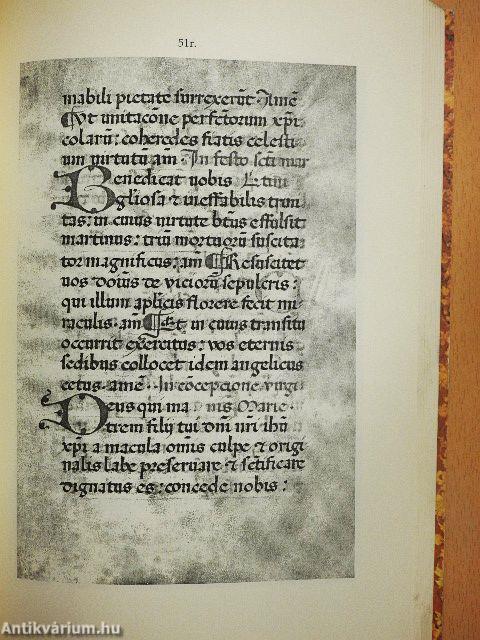 51r.
mabili pietate surrexerūt · Amē
Ut imitacōne perfectorum xp̄i
colarū: coheredes fiatis celesti
um virtutū am̄ In festo sct̄i mar
Benedicat vobis tini
gliosa & ineffabilis trini
tas: in cuius virtute bt̄us effulsit
martinus: triū mortuorū suscita
tor magnificus: am̄ Resuscitet
vos dom̄s de viciorū sepulcris:
qui illum aplicis florere fecit mi
raculis · am̄ Et in cuius transitu
occurrit exercitus: vos eternis
sedibus collocet idem angelicus
cetus · amē · In cōcepcione virgi
Deus qui ma nis Marie ·
trem filij tui dn̄i nr̄i ihū
xp̄i a macula om̄is culpe & origi
nalis labe preservare & sct̄ificare
dignatus es: concede nobis:
Antikvárium.hu